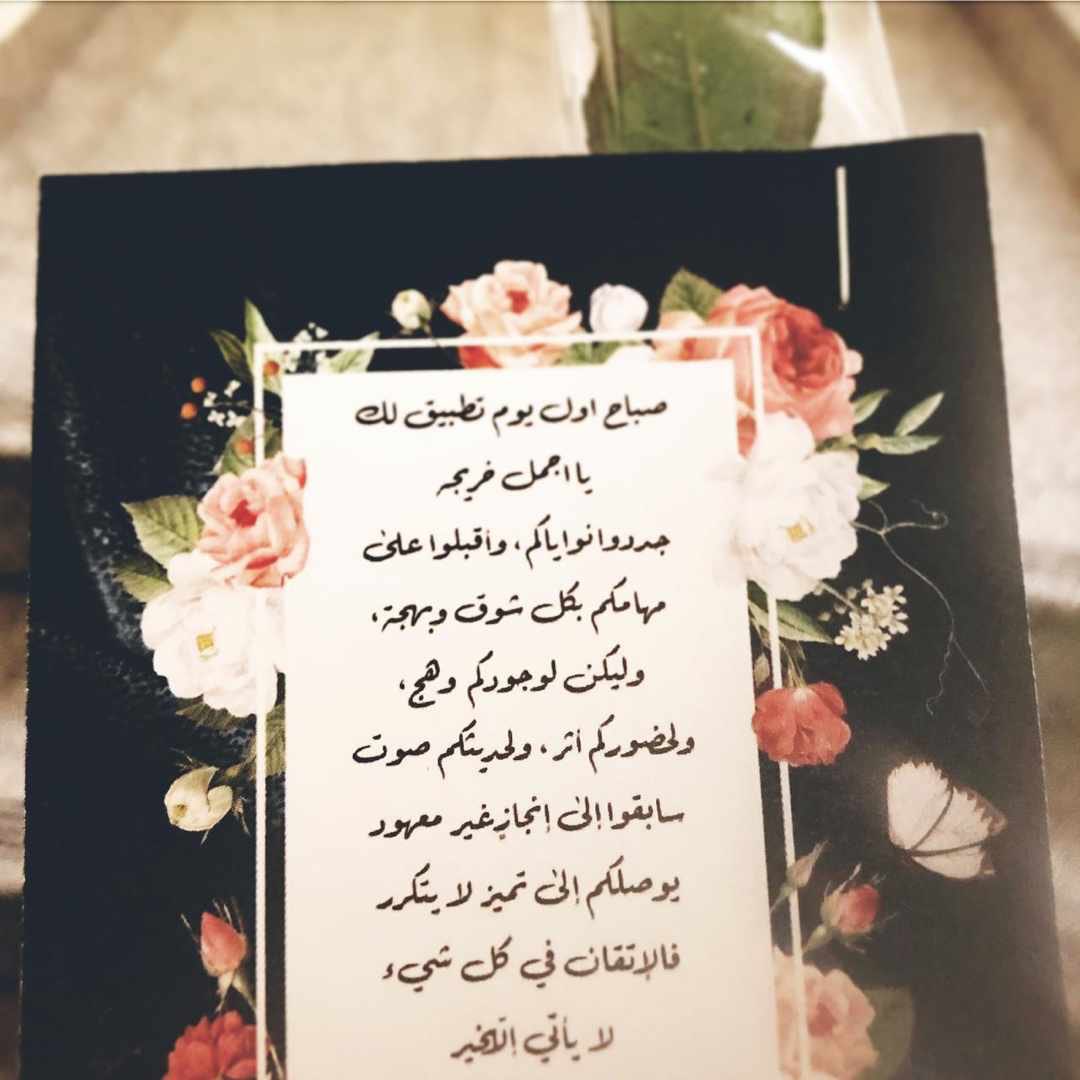 صباح اول يوم تطبيق لك
يا اجمل خريجه
جددوا نواياكم، وأقبلوا على
مهامكم بكل شوق وبهجة،
وليكن لوجودكم وهج،
ولحضوركم أثر، ولحديثكم صوت
سابقوا إلى إنجازٍ غير معهود
يوصلكم إلى تميز لا يتكرر
فالإتقان في كل شيء
لا يأتي إلا بخير